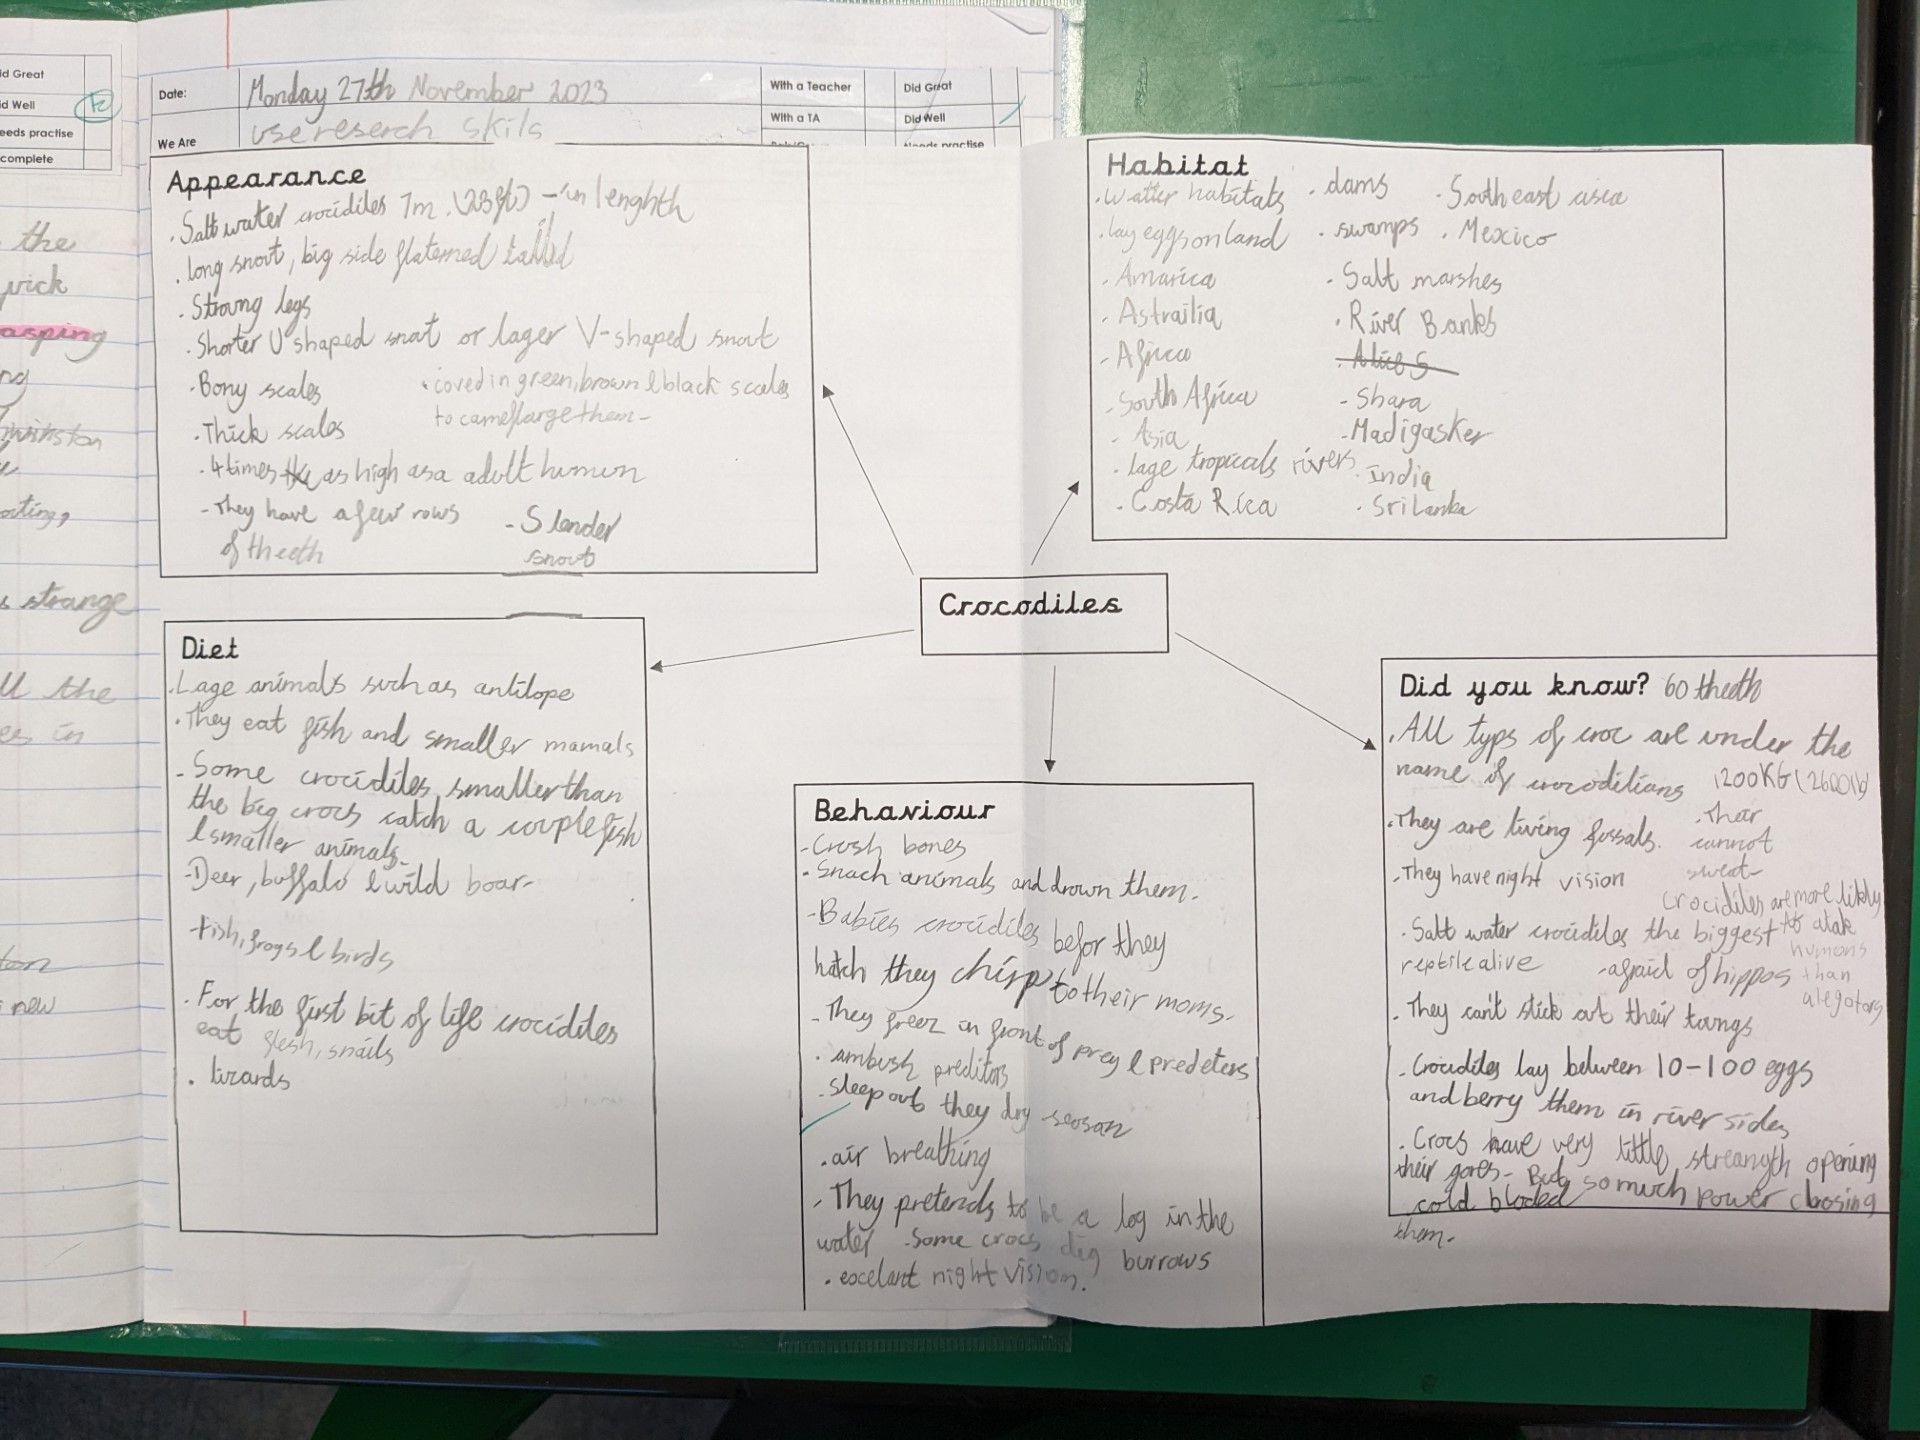 id Great
id Well
eeds practise
complete
the
uick
asping
ng
winston
oating,
s strange
ll the
es in
new
Date:
Monday 27th November 2023
With a Teacher
Did Great
We Are
use reserch skils
With a TA
Did Well
Needs practise
Appearance
. Salt water crocidiles 7m. (23ft) - in lenghth
. long snout, big side flaterned
. Stroung legs
. Shorter U shaped snout or lager V-shaped snout
. Bony scales
. coved in green, brown & black scales
to cameflarge them-
. Thick scales
. 4 times as high as a adult humun
- They have a few rows
of theeth
- Slender
snout
Habitat
. Watter habitats
. dams
. South east asia
. lay eggs on land
. swamps
. Mexico
. Amarica
- Salt marshes
. Astrailia
. River Banks
- Africa
- South Africa
- Shara
- Asia
- Madigasker
. lage tropicals rivers
. India
. Costa Rica
. Sri Lanka
Crocodiles
Diet
. Lage animals such as antilope
. They eat fish and smaller mamals
- Some crocidiles smaller than
the big crocs catch a couple fish
& smaller animals-
- Deer, buffalo & wild boar-
- fish, frogs & birds
. For the first bit of life crocidiles
eat flesh, snails
. lizards
Behaviour
- Crush bones
. Snach animals and drown them.
- Babies crocidiles befor they
hatch they chirp to their moms.
- They freez in front of prey & predeters
. ambush preditors
. sleep out they dry seosan
. air breathing
. They pretends to be a log in the
water - Some crocs dig burrows
. excelant night vision.
Did you know? 60 theeth
. All typs of croc are under the
name of crocodilians
1200KG (2600lb)
. They are living fossals.
. Thair
cannot
sweat-
. They have night vision
Crocidiles are more likly
to atak
humans
than
alegators
. Salt water crocidiles the biggest
reptile alive
- afraid of hippos
. They can't stick out their toungs
. Crocidiles lay between 10-100 eggs
and berry them in river sides
. Crocs have very little streangth opening
their gores- But so much power closing
them.
cold bloded